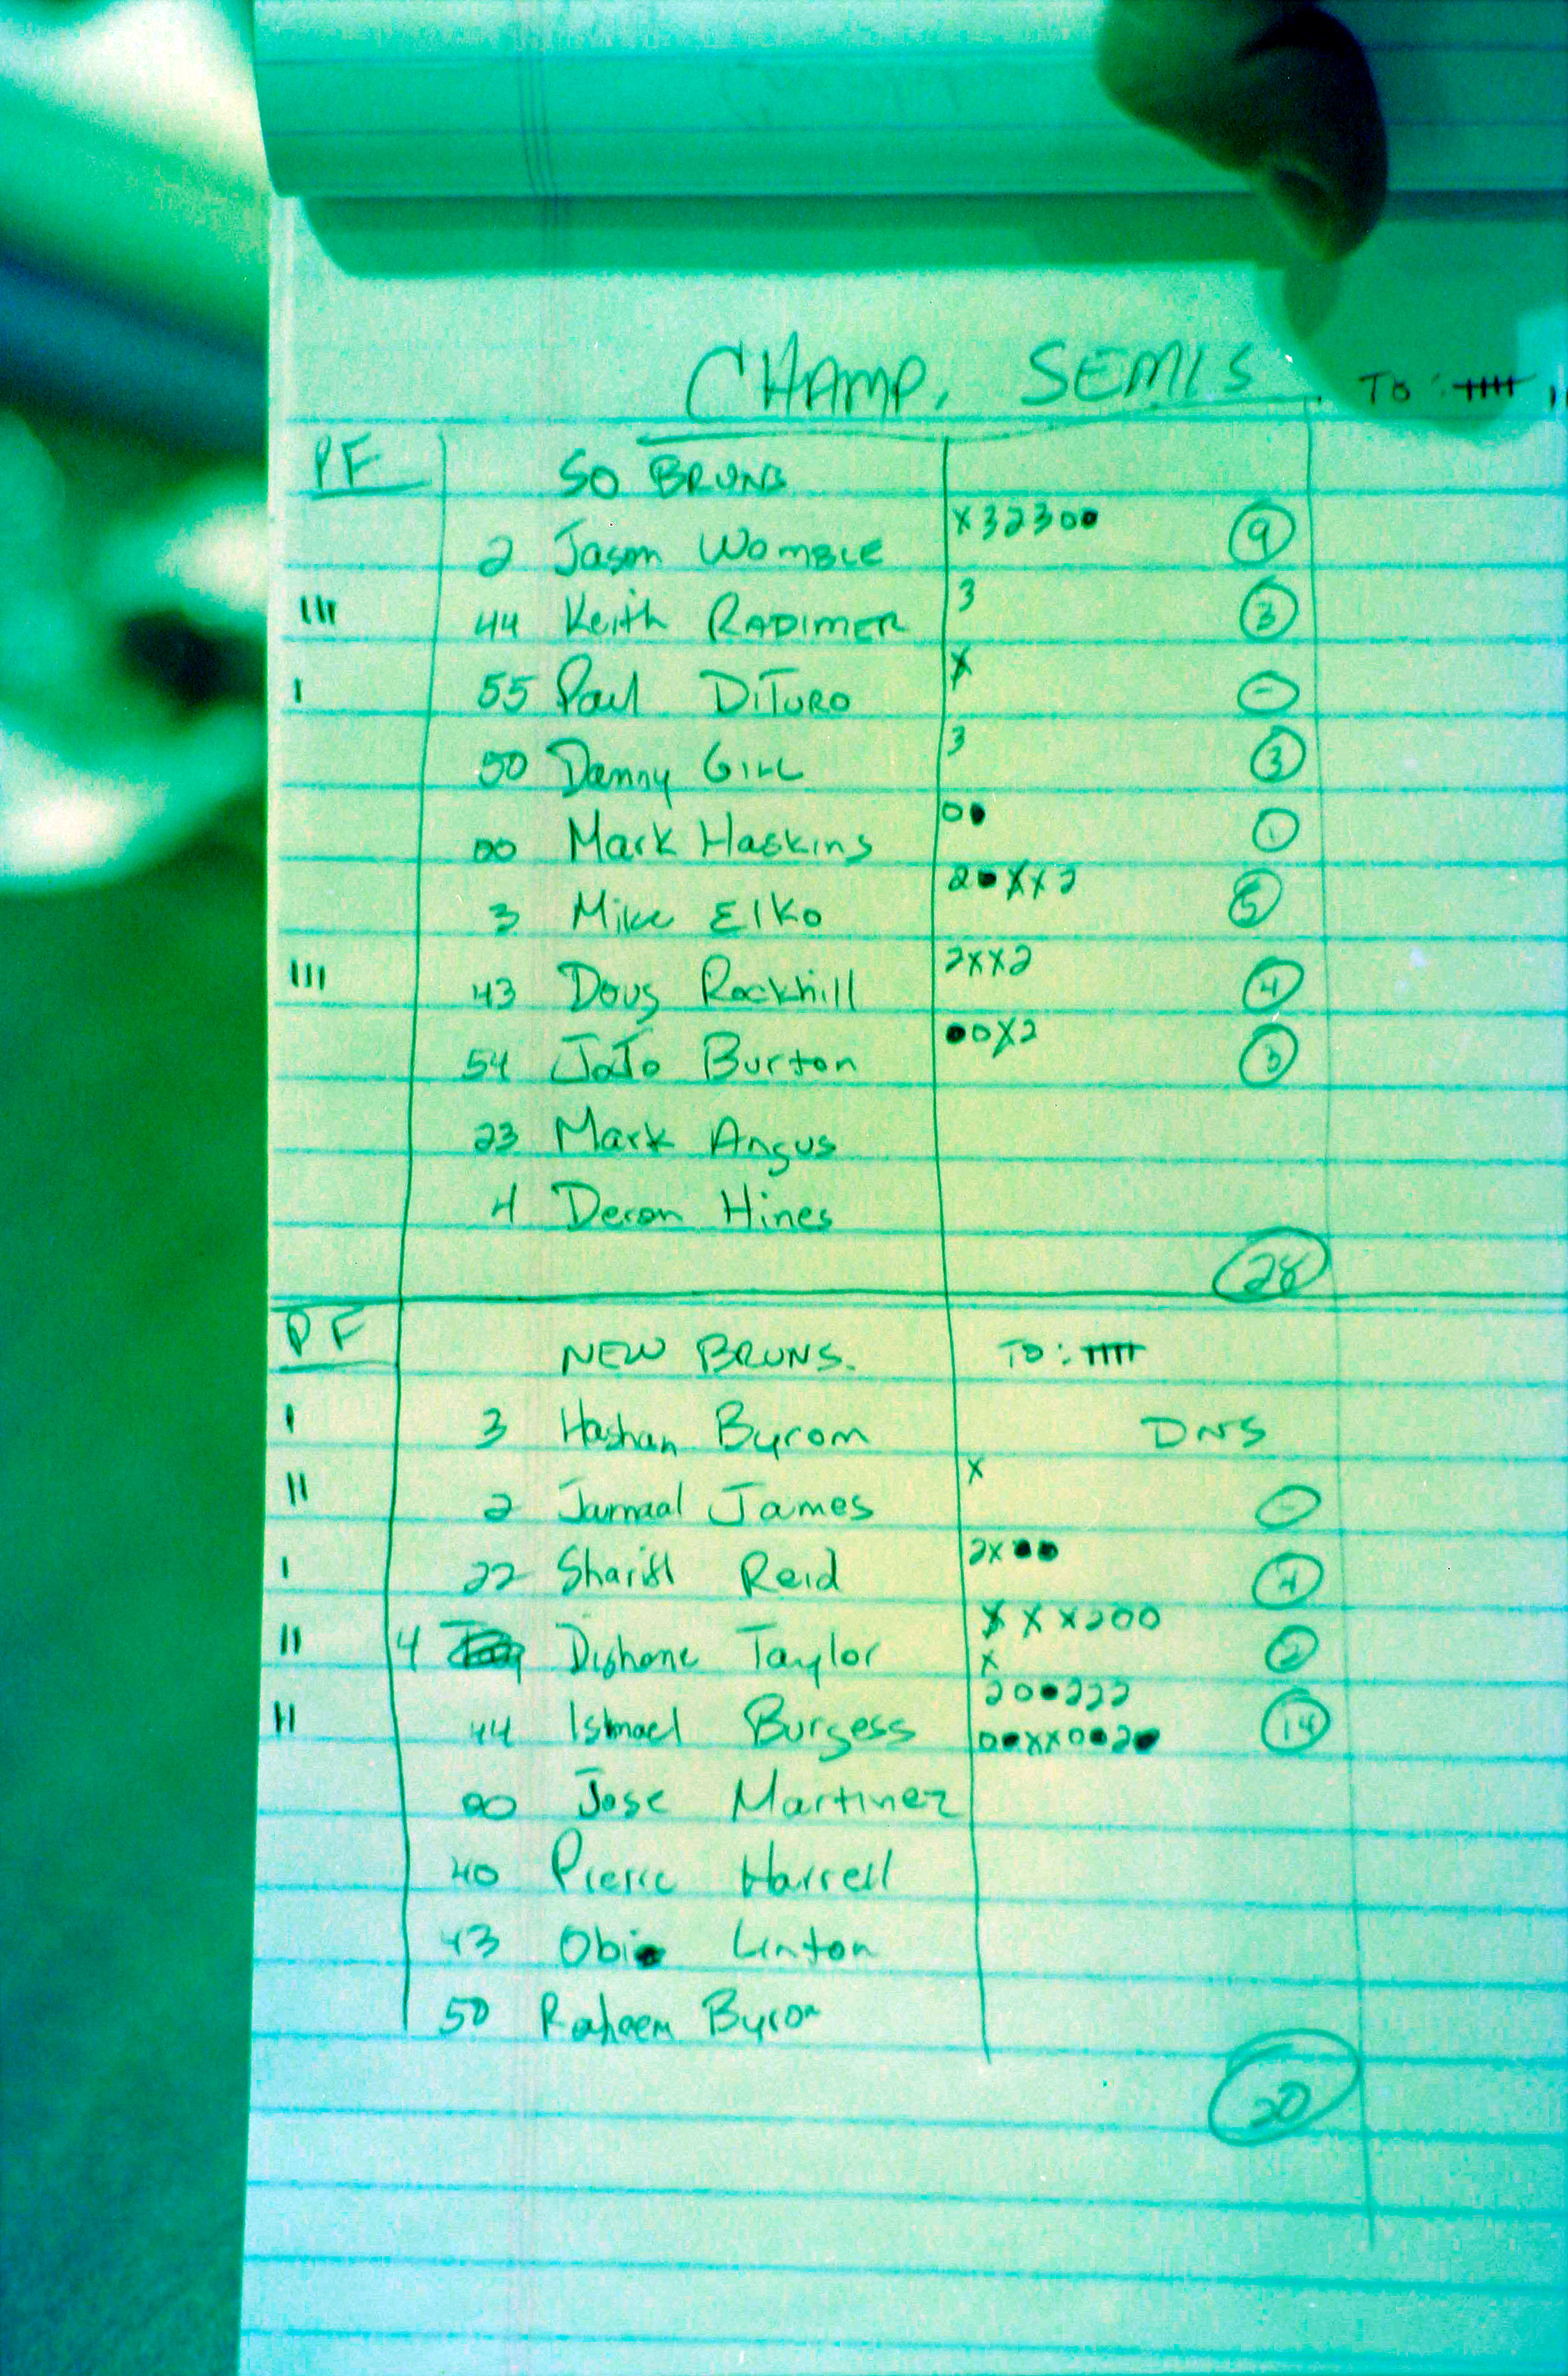 CHAMP. SEMIS TO:
PF SO BRUNS
2 Jason WOMBLE x32300 9
III 44 Keith RADIMER 3 3
I 55 Paul DITURO x -
50 Danny GILL 3 3
00 Mark Haskins 00 1
3 Mike Elko 20xx2 5
III 43 Doug Rockhill 2xx2 4
54 JoJo Burton 00x2 3
23 Mark Angus
4 Deron Hines
28
PF NEW BRUNS. TO:
I 3 Hashan Byrom DNS
II 2 Jamaal James x -
I 22 Reid 2x00 4
II 4 Dishone Taylor x x x200 2
x
II 44 Ishmael Burgess 200222 14
00xx0020
00 Jose Martinez
40 Pierre Harrell
43 Obie Linton
50 Raheem Byrom
20